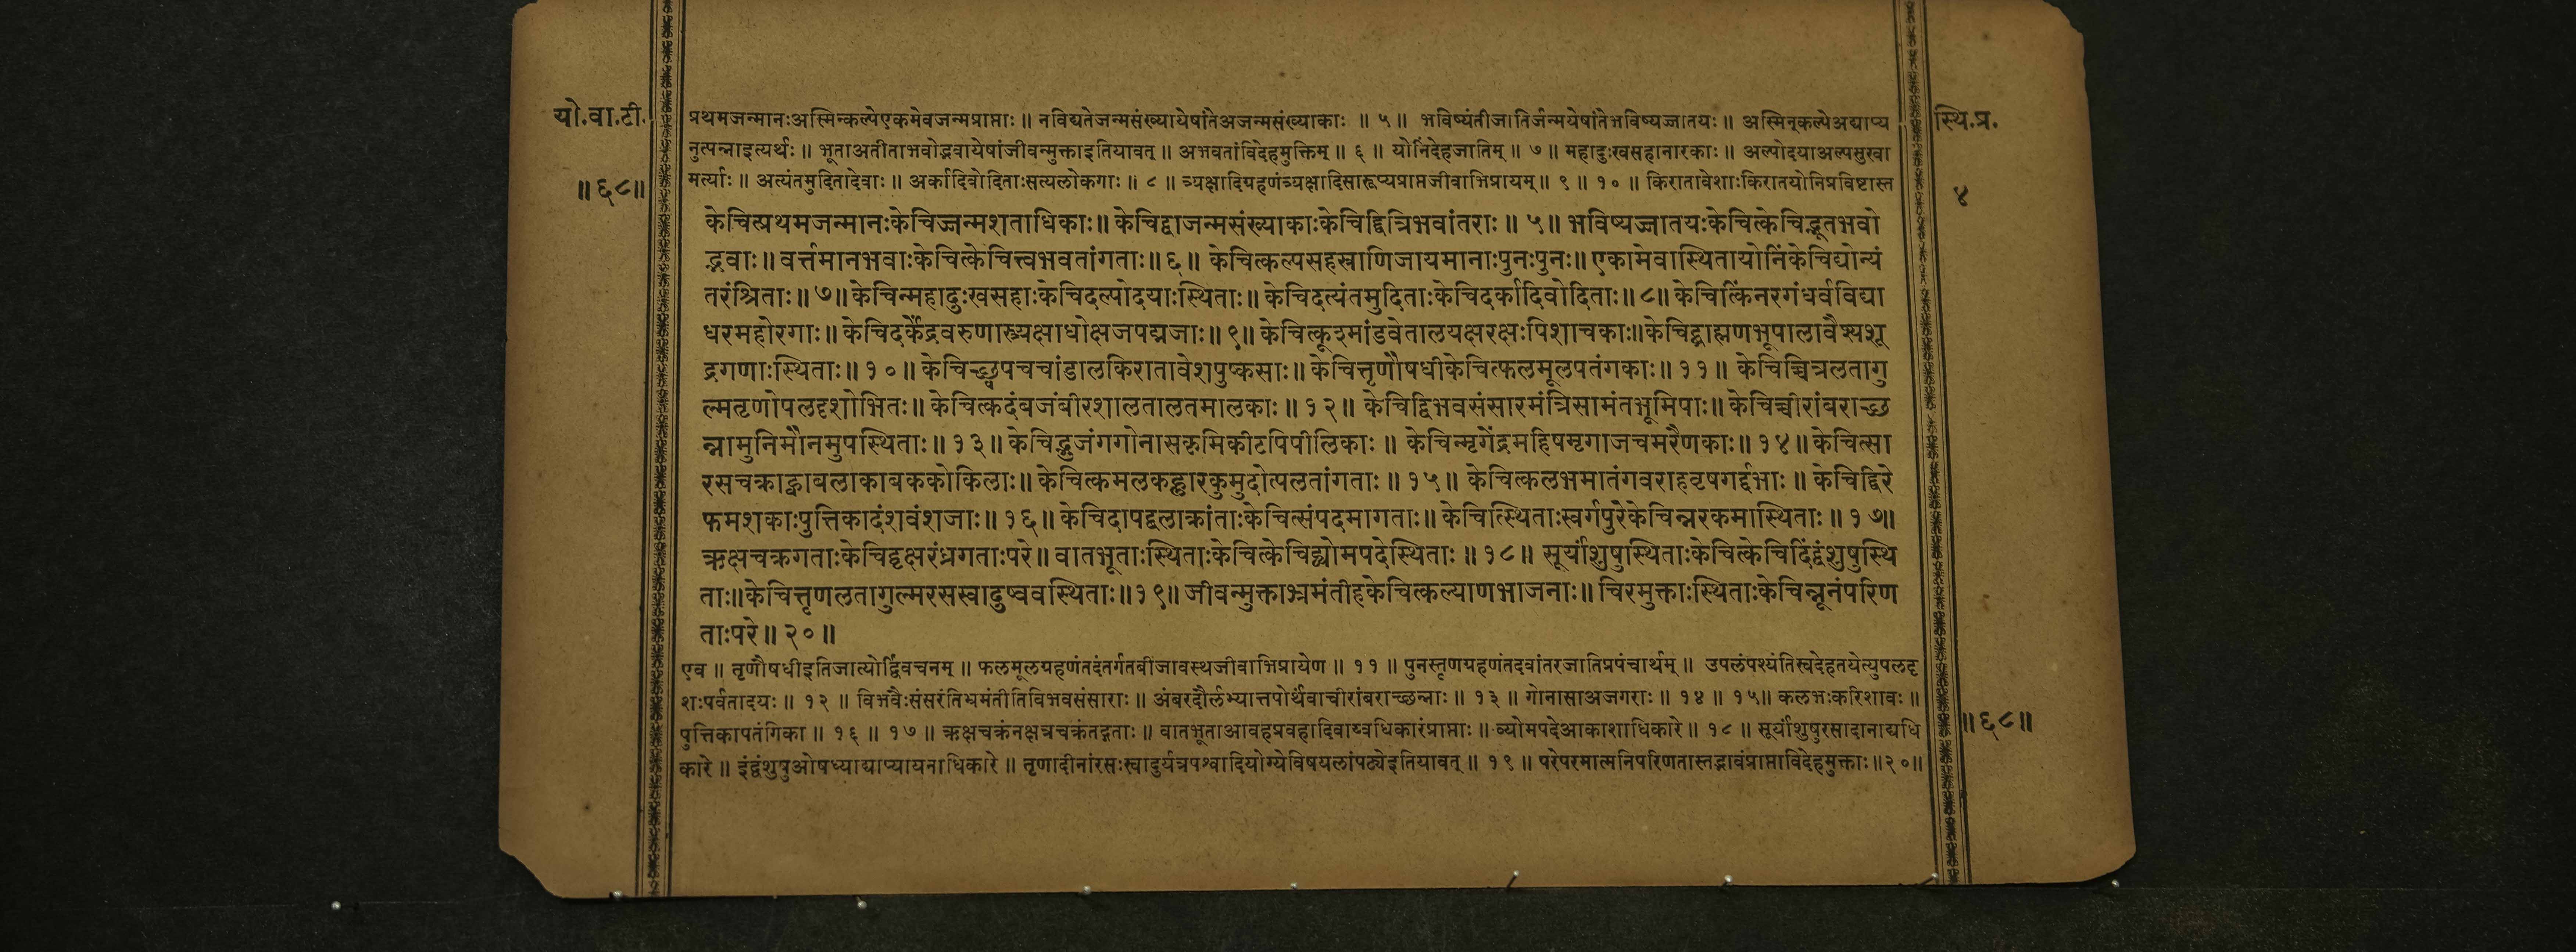 यो.वा.टी.
॥६८॥
प्रथमजन्मानःअस्मिन्कल्पेएकमेवजन्मप्राप्ताः ॥ नविद्यतेजन्मसंख्यायेषांतेअजन्मसंख्याकाः ॥ ५ ॥ भविष्यंतीजातिर्जन्मयेषांतेभविष्यज्जातयः ॥ अस्मिन्कल्पेअद्याप्य
नुत्पन्नाइत्यर्थः ॥ भूताअतीताभवोद्भवायेषांजीवन्मुक्ताइतियावत् ॥ अभवतांविदेहमुक्तिम् ॥ ६ ॥ योनिंदेहजातिम् ॥ ७ ॥ महादुःखसहानारकाः ॥ अल्पोदयाअल्पसुखा
मर्त्याः ॥ अत्यंतमुदितादेवाः ॥ अर्कादिवोदिताःसत्यलोकगाः ॥ ८ ॥ त्र्यक्षादिग्रहणंत्र्यक्षादिसारूप्यप्राप्तजीवाभिप्रायम् ॥ ९ ॥ १० ॥ किरातावेशाःकिरातयोनिप्रविष्टास्त
केचित्प्रथमजन्मानःकेचिज्जन्मशताधिकाः ॥ केचिद्वाजन्मसंख्याकाःकेचिद्द्वित्रिभवांतराः ॥ ५ ॥ भविष्यज्जातयःकेचित्केचिद्भूतभवो
द्भवाः ॥ वर्त्तमानभवाःकेचित्केचित्त्वभवतांगताः ॥ ६ ॥ केचित्कल्पसहस्राणिजायमानाःपुनःपुनः ॥ एकामेवास्थितायोनिंकेचिद्योन्यं
तरंश्रिताः ॥ ७ ॥ केचिन्महादुःखसहाःकेचिदल्पोदयाःस्थिताः ॥ केचिदत्यंतमुदिताःकेचिदर्कादिवोदिताः ॥ ८ ॥ केचित्किंनरगंधर्वविद्या
धरमहोरगाः ॥ केचिदर्केंद्रवरुणास्त्र्यक्षाधोक्षजपद्मजाः ॥ ९ ॥ केचित्कूश्मांडवेतालयक्षरक्षःपिशाचकाः ॥ केचिद्ब्राह्मणभूपालावैश्यशू
द्रगणाःस्थिताः ॥ १० ॥ केचिच्छ्वपचचांडालकिरातावेशपुष्कसाः ॥ केचित्तृणौषधीकेचित्फलमूलपतंगकाः ॥ ११ ॥ केचिच्चित्रलतागु
ल्मतृणोपलदृशोभितः ॥ केचित्कदंबजंबीरशालतालतमालकाः ॥ १२ ॥ केचिद्विभवसंसारमंत्रिसामंतभूमिपाः ॥ केचिच्चीरांबराच्छ
न्नामुनिमौनमुपस्थिताः ॥ १३ ॥ केचिद्भुजंगगोनासकृमिकीटपिपीलिकाः ॥ केचिन्मृगेंद्रमहिषमृगाजचमरैणकाः ॥ १४ ॥ केचित्सा
रसचक्राह्वाबलाकाबककोकिलाः ॥ केचित्कमलकह्लारकुमुदोत्पलतांगताः ॥ १५ ॥ केचित्कलभमातंगवराहवृषगर्द्दभाः ॥ केचिद्विरे
फमशकाःपुत्तिकादंशवंशजाः ॥ १६ ॥ केचिदापद्बलाक्रांताःकेचित्संपदमागताः ॥ केचित्स्थिताःस्वर्गपुरेकेचिन्नरकमास्थिताः ॥ १७ ॥
ऋक्षचक्रगताःकेचिद्वृक्षरंध्रगताःपरे ॥ वातभूताःस्थिताःकेचित्केचिद्व्योमपदेस्थिताः ॥ १८ ॥ सूर्यांशुषुस्थिताःकेचित्केचिदिंद्वंशुषुस्थि
ताः ॥ केचित्तृणलतागुल्मरसस्वादुष्ववस्थिताः ॥ १९ ॥ जीवन्मुक्ताभ्रमंतीहकेचित्कल्याणभाजनाः ॥ चिरमुक्ताःस्थिताःकेचिन्नूनंपरिण
ताःपरे ॥ २० ॥
एव ॥ तृणौषधीइतिजात्योर्द्विवचनम् ॥ फलमूलग्रहणंतदंतर्गतबीजावस्थजीवाभिप्रायेण ॥ ११ ॥ पुनस्तृणग्रहणंतदवांतरजातिप्रपंचार्थम् ॥ उपलंपश्यंतिस्वदेहतयेत्युपलदृ
शःपर्वतादयः ॥ १२ ॥ विभवैःसंसरंतिभ्रमंतीतिविभवसंसाराः ॥ अंबरदौर्लभ्यात्तपोर्थंवाचीरांबराच्छन्नाः ॥ १३ ॥ गोनासाअजगराः ॥ १४ ॥ १५ ॥ कलभःकरिशावः ॥
पुत्तिकापतंगिका ॥ १६ ॥ १७ ॥ ऋक्षचक्रंनक्षत्रचक्रंतद्गताः ॥ वातभूताआवहप्रवहादिवाय्वधिकारंप्राप्ताः ॥ व्योमपदेआकाशाधिकारे ॥ १८ ॥ सूर्यांशुषुरसादानाद्यधि
कारे ॥ इंद्वंशुषुओषध्याद्याप्यायनाधिकारे ॥ तृणादीनांरसःस्वादुर्यत्रपश्वादियोग्येविषयलांपट्येइतियावत् ॥ १९ ॥ परेपरमात्मनिपरिणतास्तद्भावंप्राप्ताविदेहमुक्ताः ॥ २० ॥
स्थि.प्र.
४
॥६८॥